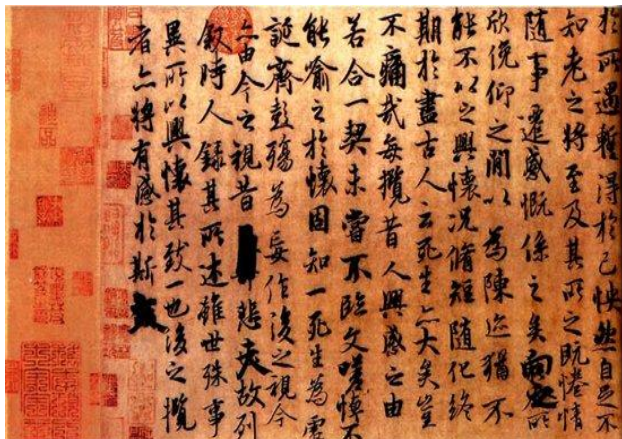 於所遇暫得於己怏然自足不
知老之將至及其所之既惓情
随事遷感慨係之矣向之所
欣俛仰之閒以為陳迹猶不
能不以之興懷况脩短随化終
期於盡古人云死生亦大矣豈
不痛哉每攬昔人興感之由
若合一契未嘗不臨文嗟悼不
能喻之於懷固知一死生為虛
誕齊彭殤為妄作後之視今
亦由今之視昔悲夫故列
叙時人錄其所述雖世殊事
異所以興懷其致一也後之攬
者亦將有感於斯文